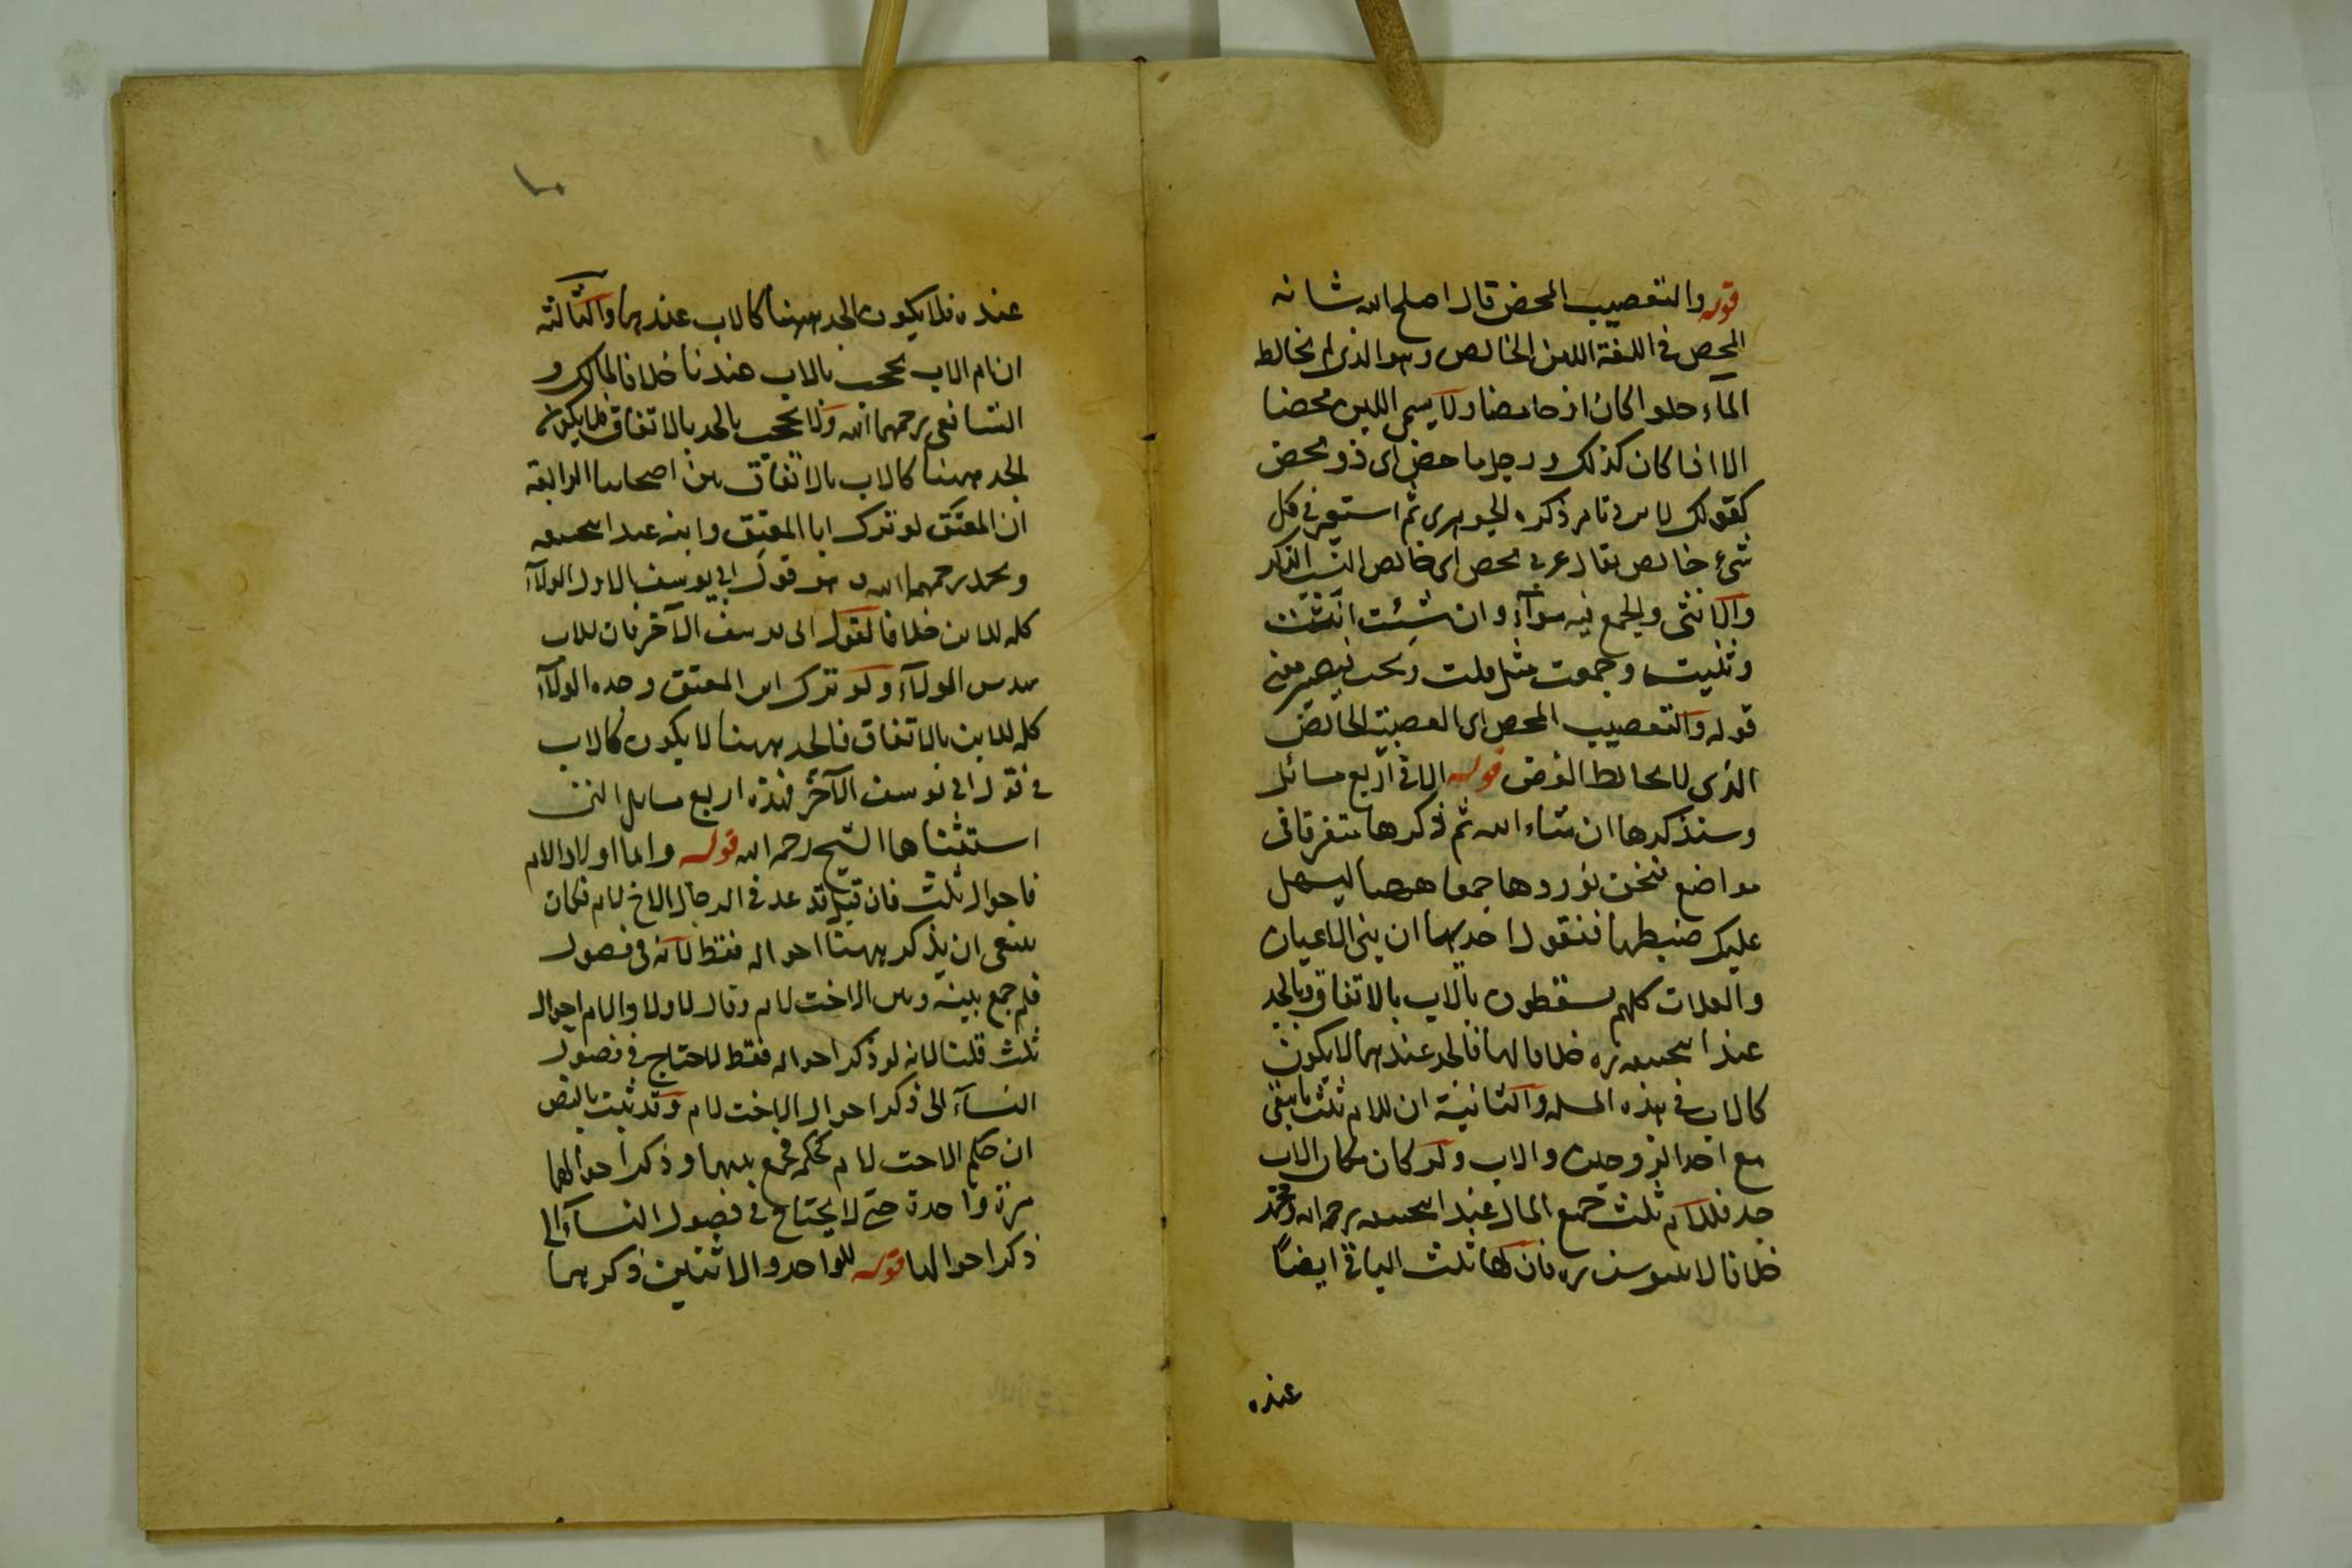 قوله والتعصيب المحض قال اصلح الله شانه
المحض فى اللغة اللبن الخالص وهو الذى لم يخالط
المآء حلوا كان او حامضا ولا يسمى اللبن محضا
الا اذا كان كذلك ورجل ماحض اى ذو محض
كقولك لابن وتامر ذكره الجوهرى ثم استعير فى كل
شئ خالص يقال عربى محض اى خالص النسب الذكر
والانثى والجمع فيه سوآء وان شئت انثت
وثنيت وجمعت مثل قلت وبحت فيصير معنى
قوله والتعصيب المحض اى العصبية الخالص
الذى لا يخالط الفرض قوله الا فى اربع مسائل
وسنذكرها ان شاء الله ثم ذكرها متفرقا فى
مواضع فنحن نوردها جمعا ههنا ليسهل
عليك ضبطها فنقول احديها ان بنى الاعيان
والعلات كلهم يسقطون بالاب بالاتفاق وبالجد
عند ابيحنيفه ره خلافا لهما فالجد عندهما لا يكون
كالاب فى هذه المسله والثانية ان للام ثلث ما يبقى
مع احد الزوجين والاب ولو كان مكان الاب
جد فللام ثلث جميع المال عند ابيحنيفه رحمه الله ومحمد
خلافا لابيوسف ره فان لها ثلث الباقى ايضًا
عنده
١٠
عنده فلا يكون الجد ههنا كالاب عندهما والثالثة
ان ام الاب يحجب بالاب عندنا خلافا لمالك و
الشافعى رحمهما الله ولا يحجب بالجد بالاتفاق فلا يكون
الجد ههنا كالاب بالاتفاق من اصحابنا الرابعة
ان المعتق لو ترك ابا المعتق وابنه عند ابيحنيفه
ومحمد رحمهما الله وهو قول ابى يوسف الاول الولآء
كله للابن خلافا لقول ابى يوسف الآخر فان للاب
سدس الولآء ولو ترك ابن المعتق وجده الولآء
كله للابن بالاتفاق فالجد ههنا لا يكون كالاب
فى قول ابى يوسف الآخر فهذه اربع مسايل التى
استثناها الشيخ رحمه الله قوله واما اولاد الام
فاحوال ثلث فان قيل قد عد فى الرجال الاخ لام فكان
ينبغى ان يذكر ههنا احواله فقط لانه فى فصول
فلم جمع بينه وبين الاخت لام وقال لاولاد الام احوال
ثلث قلنا لانه لو ذكر احواله فقط لاحتاج فى فصول
النسآء الى ذكر احوال الاخت لام وقد ثبت بالنص
ان حكم الاخت لام كحكمه فجمع بينهما وذكر احوالهما
مرة واحدة حتى لا يحتاج فى فصول النسآء الى
ذكر احوالها قوله للواحد والاثنين ذكر هما